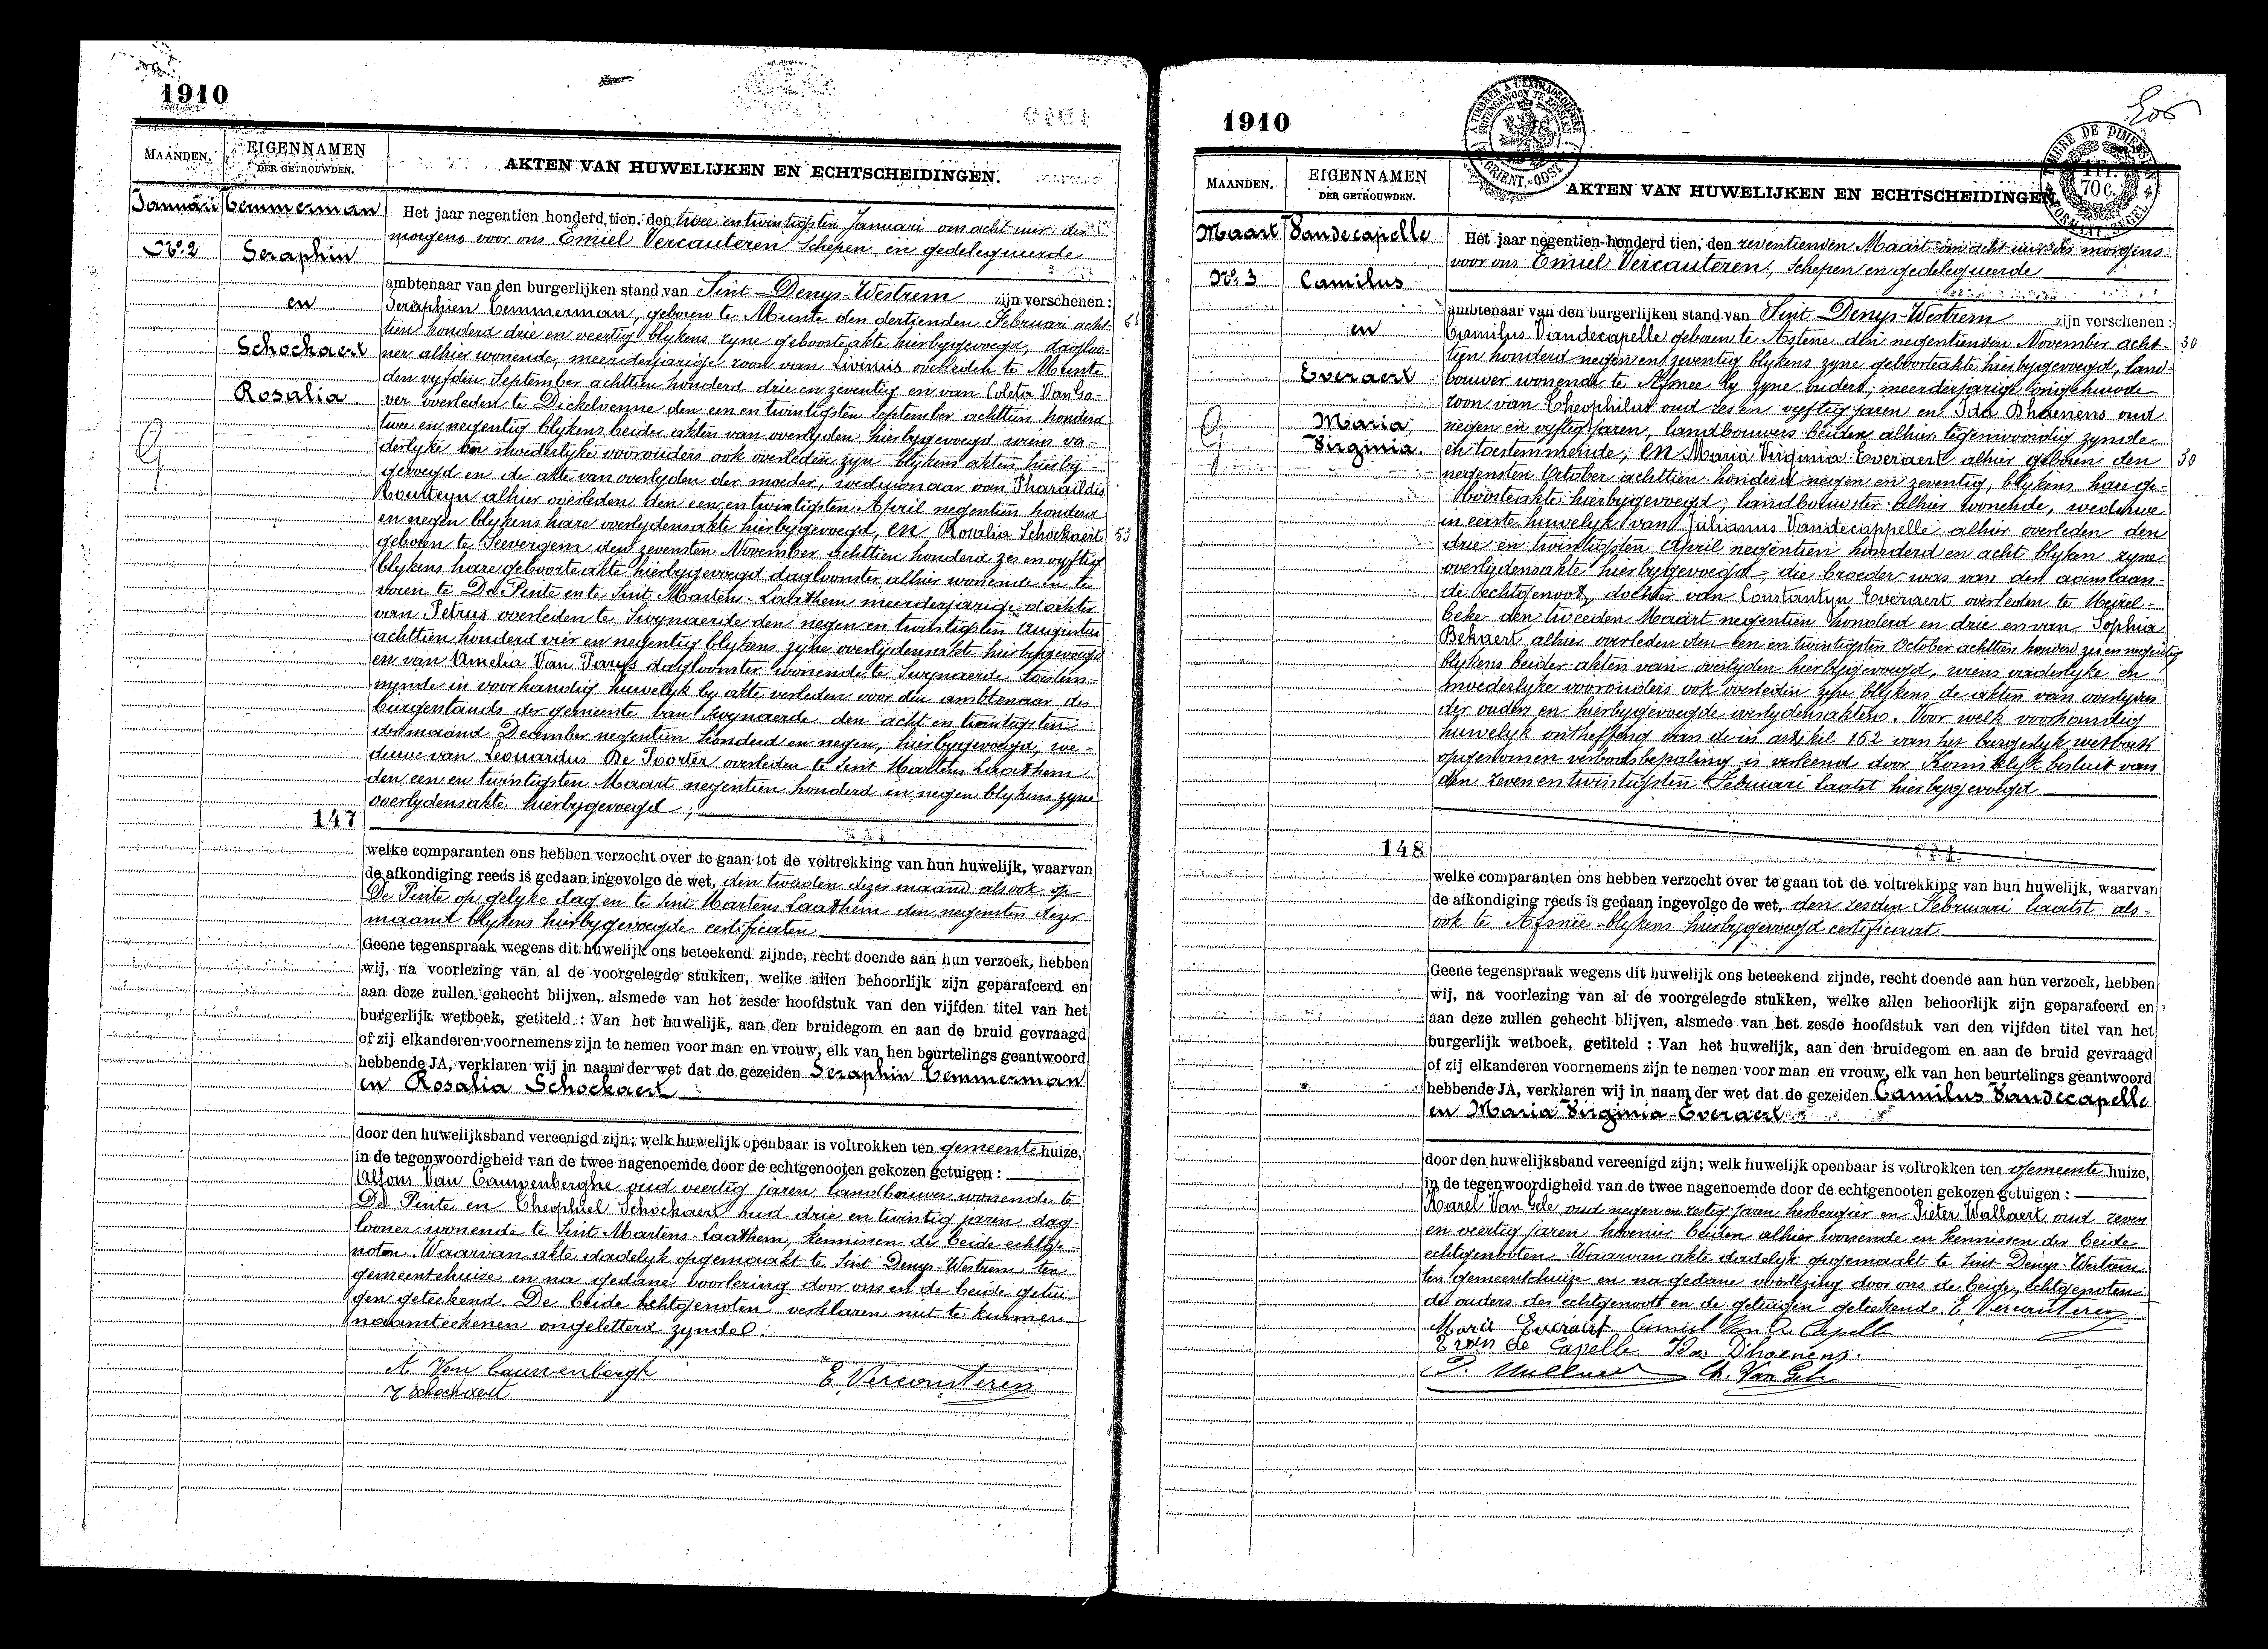 1910
MAANDEN.
EIGENNAMEN
DER GETROUWDEN.
AKTEN VAN HUWELIJKEN EN ECHTSCHEIDINGEN.
Januari
Nº 2
Temmerman
Seraphin
en
Schockaert
Rosalia
Het jaar negentien honderd tien, den twee en twintigsten Januari om acht uur des
morgens voor ons Emiel Vercauteren Schepen en gedelegueerde
ambtenaar van den burgerlijken stand van Sint-Denys-Westrem zijn verschenen:
Seraphien Temmerman, geboren te Munte den dertienden Februari acht-
tien honderd drie en veertig blykens zyne geboorteakte hierbygevoegd, dagloo-
ner alhier wonende, meerderjarige zoon van Livinus overleden te Munte
den vyfden September achttien honderd drie en zeventig en van Coleta Van Ga-
ver overleden te Dickelvenne den een en twintigsten September achttien honderd
twee en negentig blykens beider akten van overlyden hierbygevoegd wiens va-
derlyke en moederlyke voorouders ook overleden zyn blykens akten hierby-
gevoegd en de akte van overlyden der moeder, weduwnaar van Pharaïldis
alhier overleden den een en twintigsten April negentien honderd
en negen blykens hare overlydensakte hierbygevoegd, en Rosalia Schockaert 53
geboren te Seevergem den zevensten November achttien honderd zes en vyftig
blykens hare geboorteakte hierbygevoegd dagloonster alhier wonende en te
voren te De Pinte en te Sint Martens-Laathem meerderjarige dochter
van Petrus overleden te Swynaerde den negen en twintigsten Augustus
achttien honderd vier en negentig blykens zyne overlydensakte hierbygevoegd
en van Amelia Van Parys dagloonster wonende te Swynaerde toestem-
mende in voorhandig huwelyk by akte verleden voor den ambtenaar des
burgerstands der gemeente van Swynaerde den acht en twintigsten
der maand December negentien honderd en negen, hierbygevoegd; we-
duwe van Leonardus De Poorter overleden te Sint Martens Laathem
den een en twintigsten Maart negentien honderd en negen blykens zyne
overlydensakte hierbygevoegd;
147
welke comparanten ons hebben verzocht over te gaan tot de voltrekking van hun huwelijk, waarvan
de afkondiging reeds is gedaan ingevolge de wet, den tweeden dezer maand alsook op
De Pinte op gelyke dag en te Sint Martens Laathem den negensten dezer
maand blykens hierbygevoegde certificaten
Geene tegenspraak wegens dit huwelijk ons beteekend zijnde, recht doende aan hun verzoek, hebben
wij, na voorlezing van al de voorgelegde stukken, welke allen behoorlijk zijn geparafeerd en
aan deze zullen gehecht blijven, alsmede van het zesde hoofdstuk van den vijfden titel van het
burgerlijk wetboek, getiteld : Van het huwelijk, aan den bruidegom en aan de bruid gevraagd
of zij elkanderen voornemens zijn te nemen voor man en vrouw, elk van hen beurtelings geantwoord
hebbende JA, verklaren wij in naam der wet dat de gezeiden Seraphin Temmerman
en Rosalia Schockaert
door den huwelijksband vereenigd zijn; welk huwelijk openbaar is voltrokken ten gemeentehuize,
in de tegenwoordigheid van de twee nagenoemde door de echtgenooten gekozen getuigen :
Alfons Van Cauwenberghe oud veertig jaren landbouwer wonende te
De Pinte en Theophiel Schockaert oud drie en twintig jaren dag-
looner wonende te Sint Martens-Laathem, kennissen der beide echtge-
noten. Waarvan akte dadelyk opgemaakt te Sint Denys-Westrem ten
gemeentehuize en na gedane voorlezing door ons en de beide getui-
gen geteekend. De beide echtgenoten verklaren niet te kunnen
naamteekenen ongeletterd zynde.
A Van Cauwenbergh
E. Vercauteren
T Schockaert
1910
MAANDEN.
EIGENNAMEN
DER GETROUWDEN.
AKTEN VAN HUWELIJKEN EN ECHTSCHEIDINGEN.
70 c.
Maart
Nº 3
Vandecapelle
Camilus
en
Everaert
Maria,
Virginia.
Het jaar negentien honderd tien, den zeventienden Maart om acht uur des morgens
voor ons Emiel Vercauteren, Schepen en gedelegueerde
ambtenaar van den burgerlijken stand van Sint-Denys-Westrem zijn verschenen:
Camilus Vandecapelle geboren te Astene den negentienden November acht- 30
tien honderd negen en zeventig blykens zyne geboorteakte hierbygevoegd, land-
bouwer wonende te Afsnee by zyne ouders, meerderjarige ongehuwde
zoon van Theophilus oud zes en vyftig jaren en Ida Dhaenens oud
negen en vyftig jaren, landbouwers beiden alhier tegenwoordig zynde
en toestemmende; en Maria Virginia Everaert alhier geboren den 30
negensten October achttien honderd negen en zeventig, blykens hare ge-
boorteakte hierbygevoegd; landbouwster alhier wonende, weduwe
in eerste huwelyk van Julianus Vandecappelle alhier overleden den
drie en twintigsten April negentien honderd en acht blyken zyne
overlydensakte hierbygevoegd, die broeder was van den aanstaan-
de echtgenoot, dochter van Constantyn Everaert overleden te Meirel-
beke den tweeden Maart negentien honderd en drie en van Sophia
Bekaert alhier overleden den een en twintigsten October achttien honderd zes en negentig
blykens beider akten van overlyden hierbygevoegd, wiens vaderlyke en
moederlyke voorouders ook overleden zyn blykens de akten van overlyden
der ouders en hierbygevoegde overlydensakten. Voor welk voorhandig
huwelyk ontheffing van de in artikel 162 van het burgerlyk wetboek
opgenomen verbodsbepaling is verleend door Koninklyk besluit van
den zeven en twintigsten Februari laatst hierbygevoegd
148
welke comparanten ons hebben verzocht over te gaan tot de voltrekking van hun huwelijk, waarvan
de afkondiging reeds is gedaan ingevolge de wet, den zesden Februari laatst als-
ook te Afsnee blykens hierbygevoegd certificaat
Geene tegenspraak wegens dit huwelijk ons beteekend zijnde, recht doende aan hun verzoek, hebben
wij, na voorlezing van al de voorgelegde stukken, welke allen behoorlijk zijn geparafeerd en
aan deze zullen gehecht blijven, alsmede van het zesde hoofdstuk van den vijfden titel van het
burgerlijk wetboek, getiteld : Van het huwelijk, aan den bruidegom en aan de bruid gevraagd
of zij elkanderen voornemens zijn te nemen voor man en vrouw, elk van hen beurtelings geantwoord
hebbende JA, verklaren wij in naam der wet dat de gezeiden Camilus Vandecapelle
en Maria Virginia Everaert
door den huwelijksband vereenigd zijn; welk huwelijk openbaar is voltrokken ten gemeente huize,
in de tegenwoordigheid van de twee nagenoemde door de echtgenooten gekozen getuigen :
Karel Van Gele oud negen en zestig jaren herbergier en Pieter Wallaert oud zeven
en veertig jaren hovenier beiden alhier wonende en kennissen der beide
echtgenoten. Waarvan akte dadelyk opgemaakt te Sint Denys-Westrem
ten gemeentehuize en na gedane voorlezing door ons de beide echtgenoten
de ouders des echtgenoots en de getuigen geteekend. E. Vercauteren
Marie Everaert Camiel Van De Capelle
van de Capelle Ida Dhaenens.